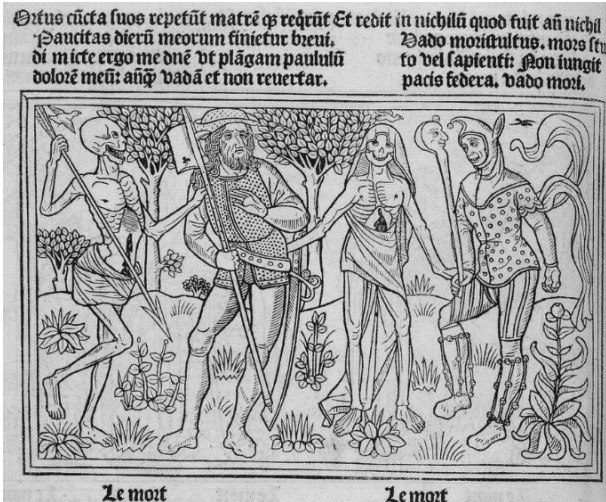 Ortus cũcta suos repetũt matrẽ qꝫ reqrũt Et redit in nichilũ quod fuit añ nichil
Paucitas dierũ meorum finietur breui.
di micte ergo me dñe vt plãgam paululũ
dolorẽ meũ: añqꝫ vadã et non reuertar.
Vado mori stultus. mors stu
to vel sapienti: Non iungit
pacis federa. vado mori.
Le mort
Le mort